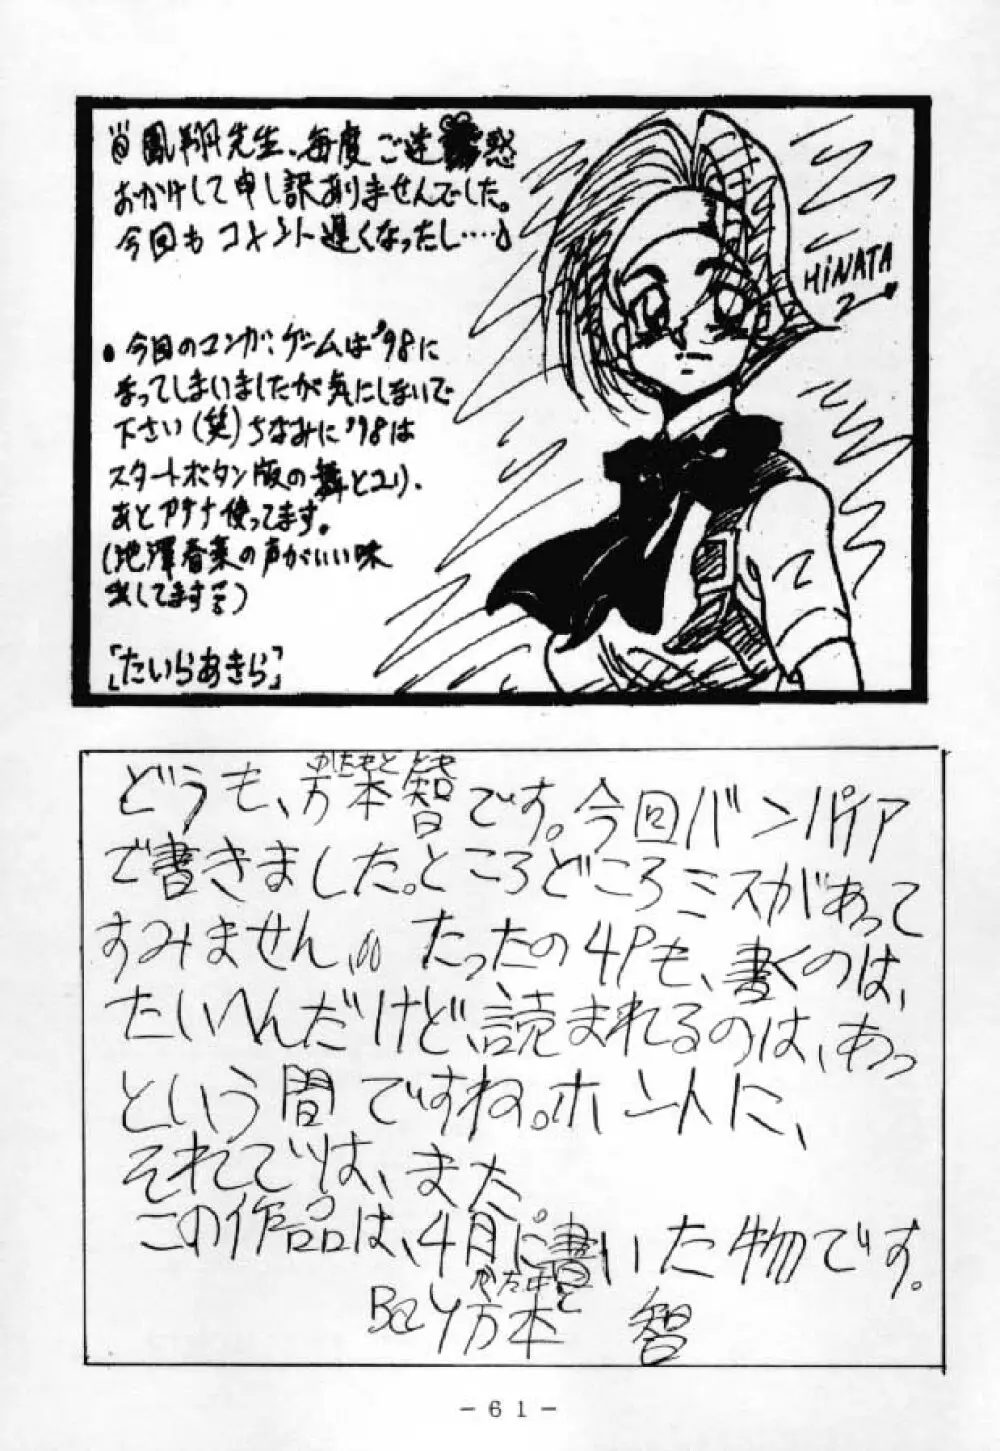 鳳翔先生、毎度ご迷惑
おかけして申し訳ありませんでした。
今回もコメント遅くなったし‥‥♪
HiNATA
2
●今回のマンガ、ゲームは'98に
なってしまいましたが気にしないで
下さい(笑)ちなみに'98は
スタートボタン版の舞とユリ、
あとアテナ使ってます。
(池澤春菜の声がいい味
出してます)
「たいらあきら」
どうも、方本智です。今回バンパイア
かたもと とも
で書きました。ところどころミスがあって
すみません。たったの4Pも、書くのは、
たいへんだけど、読まれるのは、あっ
という間ですね。ホントに、
それでは、また。
この作品は、4月に書いた物です。
かたもと
By方本 智
-61-